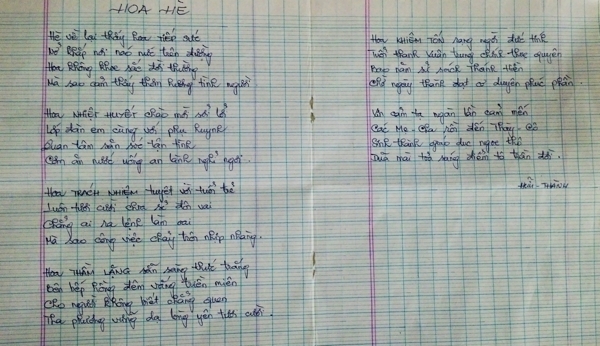 HOA HÈ
Hè về lại thấy hoa tiếp sức
Nở khắp nơi nao nức tiến đường
Hoa không khoe sắc đời thường
Mà sao cảm thấy thơm hương tình người
Hoa NHIỆT HUYẾT chào mời sởi lởi
Lớp đàn em cùng với phụ huynh
Quan tâm săn sóc tận tình
Cơm ăn nước uống an lành nghỉ ngơi.
Hoa TRÁCH NHIỆM tuyệt vời tuổi trẻ
Luôn tươi cười chia sẻ đôn vai
Chẳng ai sa lệnh làm sai
Mà sao công việc chảy trôi nhịp nhàng.
Hoa THẦM LẶNG sẵn sàng thức trắng
Bên bếp hồng đêm vắng triền miên
Cho người không biết chẳng quen
Tha phương vững dạ lòng yên tươi cười.
Hoa KHIÊM TỐN sang ngời đức tính
Tuổi thanh xuân cung chính thục quyên
Bao năm sử sách Thánh Hiền
Chờ ngày thành đạt cơ duyên phúc phần.
Xin cảm tạ ngàn lần cảm mến
Các Mẹ - Cha rồi đến Thầy - Cô
Sinh thành giáo dục ngọc thô
Dũa mài tỏ sáng điểm tô trần đời.
HOÀI - THÀNH